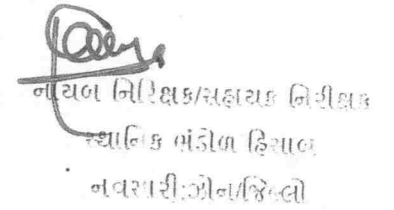 નાયબ નિરિક્ષક/સહાયક નિરીક્ષક
સ્થાનિક ભંડોળ હિસાબ
નવસારી:ઝોન/જિલ્લો